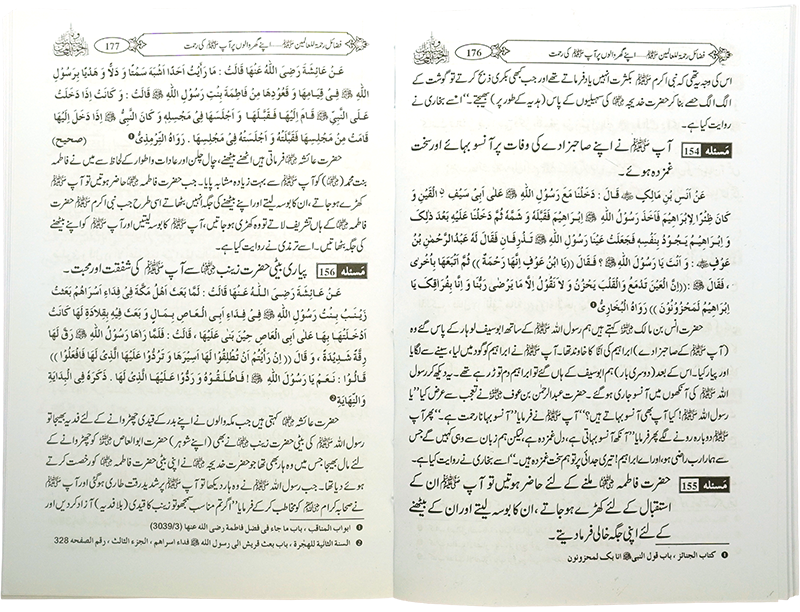 فضائل رحمۃ للعالمین ﷺ..... اپنے گھر والوں پر آپ ﷺ کی رحمت 176
اس کی وجہ یہ تھی کہ نبی اکرم ﷺ بکثرت انہیں یاد فرماتے تھے اور جب کبھی بکری ذبح کرتے تو گوشت کے
الگ الگ حصے بنا کر حضرت خدیجہ ؓ کی سہیلیوں کے پاس (ہدیہ کے طور پر) بھیجتے۔'' اسے بخاری نے
روایت کیا ہے۔
مسئله 154 آپ ﷺ نے اپنے صاحبزادے کی وفات پر آنسو بہائے اور سخت
غمزدہ ہوئے۔
عَنْ أَنَسِ بْنِ مَالِكٍ ؓ قَالَ : دَخَلْنَا مَعَ رَسُوْلِ اللّٰهِ ﷺ عَلَى أَبِيْ سَيْفٍ ؓ الْقَيْنِ وَ
كَانَ ظِئْرًا لِإِبْرَاهِيْمَ فَأَخَذَ رَسُوْلُ اللّٰهِ ﷺ إِبْرَاهِيْمَ فَقَبَّلَهُ وَ شَمَّهُ ثُمَّ دَخَلْنَا عَلَيْهِ بَعْدَ ذٰلِكَ
وَ إِبْرَاهِيْمُ يَجُوْدُ بِنَفْسِهِ فَجَعَلَتْ عَيْنَا رَسُوْلِ اللّٰهِ ﷺ تَذْرِفَانِ فَقَالَ لَهُ عَبْدُالرَّحْمٰنِ بْنُ
عَوْفٍ ؓ : وَ أَنْتَ يَا رَسُوْلَ اللّٰهِ ﷺ ؟ فَقَالَ ((يَا ابْنَ عَوْفٍ إِنَّهَا رَحْمَةٌ)) ثُمَّ أَتْبَعَهَا بِأُخْرٰى
، فَقَالَ ﷺ ((إِنَّ الْعَيْنَ تَدْمَعُ وَالْقَلْبَ يَحْزَنُ وَ لاَ نَقُوْلُ إِلَّا مَا يَرْضٰى رَبُّنَا وَ إِنَّا بِفِرَاقِكَ يَا
إِبْرَاهِيْمُ لَمَحْزُوْنُوْنَ)) رَوَاهُ الْبُخَارِيُّ ❶
حضرت انس بن مالک ؓ کہتے ہیں ہم رسول اللہ ﷺ کے ساتھ ابوسیف لوہار کے پاس گئے وہ
(آپ ﷺ کے صاحبزادے) ابراہیم کی اَنّا کا خاوند تھا۔ آپ ﷺ نے ابراہیم کو گود میں لیا، سینے سے لگایا
اور پیار کیا۔ اس کے بعد (دوسری بار) ہم ابوسیف کے ہاں گئے تو ابراہیم دم توڑ رہے تھے۔ یہ دیکھ کر رسول
اللہ ﷺ کی آنکھوں میں آنسو جاری ہو گئے۔ حضرت عبدالرحمٰن بن عوف ؓ نے تعجب سے عرض کیا ''یا
رسول اللہ ﷺ! کیا آپ بھی آنسو بہاتے ہیں؟'' آپ ﷺ نے فرمایا ''آنسو بہانا رحمت ہے۔'' پھر آپ
ﷺ دوبارہ رونے لگے پھر فرمایا ''آنکھ آنسو بہاتی ہے، دل غمزدہ ہے، لیکن ہم زبان سے وہی کہیں گے جس
سے ہمارا رب راضی ہو، اور اے ابراہیم! تیری جدائی پر تو ہم سخت غمزدہ ہیں۔'' اسے بخاری نے روایت کیا ہے۔
مسئله 155 حضرت فاطمہ ؓ ملنے کے لئے حاضر ہوتیں تو آپ ﷺ ان کے
استقبال کے لئے کھڑے ہو جاتے، ان کا بوسہ لیتے اور ان کے بیٹھنے
کے لئے اپنی جگہ خالی فرما دیتے۔
❶ كتاب الجنائز ، باب قول النبى ﷺ انا بك لمحزونون
فضائل رحمۃ للعالمین ﷺ..... اپنے گھر والوں پر آپ ﷺ کی رحمت 177
عَنْ عَائِشَةَ رَضِىَ اللّٰهُ عَنْهَا قَالَتْ : مَا رَأَيْتُ أَحَدًا أَشْبَهَ سَمْتًا وَ دَلًّا وَ هَدْيًا بِرَسُوْلِ
اللّٰهِ ﷺ فِىْ قِيَامِهَا وَ قُعُوْدِهَا مِنْ فَاطِمَةَ بِنْتِ رَسُوْلِ اللّٰهِ ﷺ قَالَتْ : وَ كَانَتْ إِذَا دَخَلَتْ
عَلَى النَّبِىِّ ﷺ قَامَ إِلَيْهَا فَقَبَّلَهَا وَ أَجْلَسَهَا فِىْ مَجْلِسِهِ وَ كَانَ النَّبِىُّ ﷺ إِذَا دَخَلَ عَلَيْهَا
قَامَتْ مِنْ مَجْلِسِهَا فَقَبَّلَتْهُ وَ أَجْلَسَتْهُ فِىْ مَجْلِسِهَا . رَوَاهُ التِّرْمِذِىُّ ❶ (صحيح)
حضرت عائشہ ؓ فرماتی ہیں اٹھنے بیٹھنے، چال چلن اور عادات و اطوار کے لحاظ سے میں نے فاطمہ
بنت محمد (ﷺ) کو آپ ﷺ سے بہت زیادہ مشابہ پایا۔ جب حضرت فاطمہ ؓ حاضر ہوتیں تو آپ ﷺ
کھڑے ہو جاتے، ان کا بوسہ لیتے اور اپنے بیٹھنے کی جگہ انہیں بٹھاتے اسی طرح جب نبی اکرم ﷺ حضرت
فاطمہ ؓ کے ہاں تشریف لاتے تو وہ کھڑی ہو جاتیں، آپ ﷺ کا بوسہ لیتیں اور آپ ﷺ کو اپنے بیٹھنے
کی جگہ بٹھاتیں۔ اسے ترمذی نے روایت کیا ہے۔
مسئله 156 پیاری بیٹی حضرت زینب ؓ سے آپ ﷺ کی شفقت اور محبت۔
عَنْ عَائِشَةَ رَضِىَ اللّٰهُ عَنْهَا قَالَتْ : لَمَّا بَعَثَ أَهْلُ مَكَّةَ فِىْ فِدَاءِ أَسْرَاهُمْ بَعَثَتْ
زَيْنَبُ بِنْتُ رَسُوْلِ اللّٰهِ ﷺ فِىْ فِدَاءِ أَبِى الْعَاصِ بِمَالٍ وَ بَعَثَتْ فِيْهِ بِقِلَادَةٍ لَهَا كَانَتْ
أَدْخَلَتْهَا بِهَا عَلٰى أَبِى الْعَاصِ حِيْنَ بَنٰى عَلَيْهَا ، قَالَتْ : فَلَمَّا رَاهَا رَسُوْلُ اللّٰهِ ﷺ رَقَّ لَهَا
رِقَّةً شَدِيْدَةً ، وَ قَالَ ((إِنْ رَأَيْتُمْ أَنْ تُطْلِقُوْا لَهَا أَسِيْرَهَا وَ تَرُدُّوْا عَلَيْهَا الَّذِىْ لَهَا فَافْعَلُوْا))
قَالُوْا : نَعَمْ يَا رَسُوْلَ اللّٰهِ ﷺ ! فَأَطْلَقُوْهُ وَ رَدُّوْا عَلَيْهَا الَّذِىْ لَهَا . ذَكَرَهُ فِى الْبِدَايَةِ
وَ النِّهَايَةِ ❷
حضرت عائشہ ؓ کہتی ہیں جب مکہ والوں نے اپنے بدر کے قیدی چھڑوانے کے لئے فدیہ بھیجا تو
رسول اللہ ﷺ کی بیٹی حضرت زینب ؓ نے بھی (اپنے شوہر) حضرت ابوالعاص ؓ کو چھڑوانے کے
لئے مال بھیجا جس میں وہ ہار بھی تھا جو حضرت خدیجہ ؓ نے اپنی بیٹی حضرت فاطمہ ؓ کو رخصت کرتے
وقت دیا تھا۔ جب رسول اللہ ﷺ نے وہ ہار دیکھا تو آپ ﷺ پر شدید رقت طاری ہو گئی اور آپ ﷺ
نے صحابہ کرام ؓ کو مخاطب کر کے فرمایا ''اگر تم مناسب سمجھو تو زینب کا قیدی (بلا فدیہ) آزاد کر دیں اور
❶ ابواب المناقب ، باب ما جاء فى فضل فاطمة رضى الله عنها (3039/3)
❷ السنة الثانية للهجرة ، باب بعث قريش الى رسول الله ﷺ فداء اسراهم ، الجزء الثالث ، رقم الصفحه 328